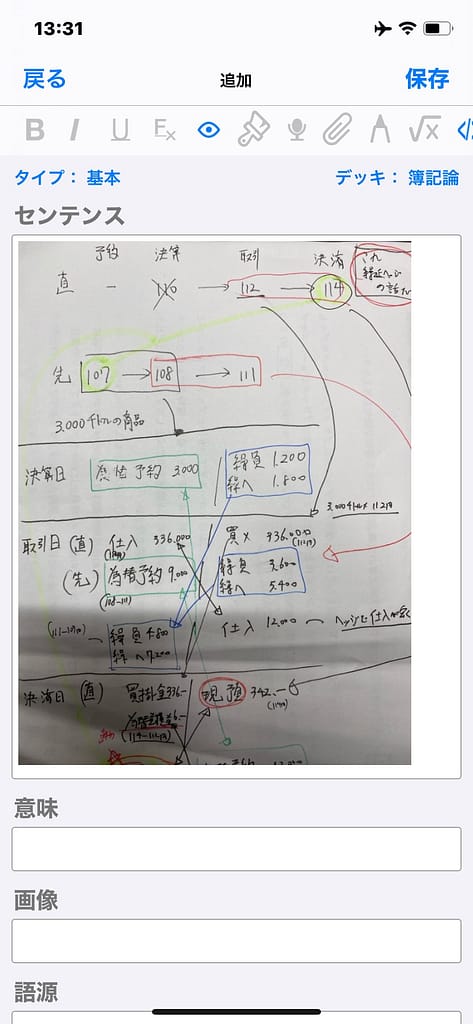 13:31
戻る 追加 保存
B I U Fx √x </
タイプ： 基本 デッキ： 簿記論
センテンス
予約 決算 取引 決済
直 - 110 → 112 → 114
これ
の話
先 107 → 108 → 111
3,000千ドルの商品
決算日 為替予約 3,000 / 繰負 1,200
繰ヘ 1,800
3,000千ドル×112円
取引日 (直) 仕入 336,000 / 買× 336,000
(112円) (112円)
(先) 為替予約 9,000 繰負 3,600
(108-111) 繰ヘ 5,400
(111-107円) 繰負 4,800 仕入 12,000
繰ヘ 7,200
決済日 (直) 買掛金 336.- 現預 342.-
(114円)
為替差損益 6.-
(114-112円)
意味
画像
語源